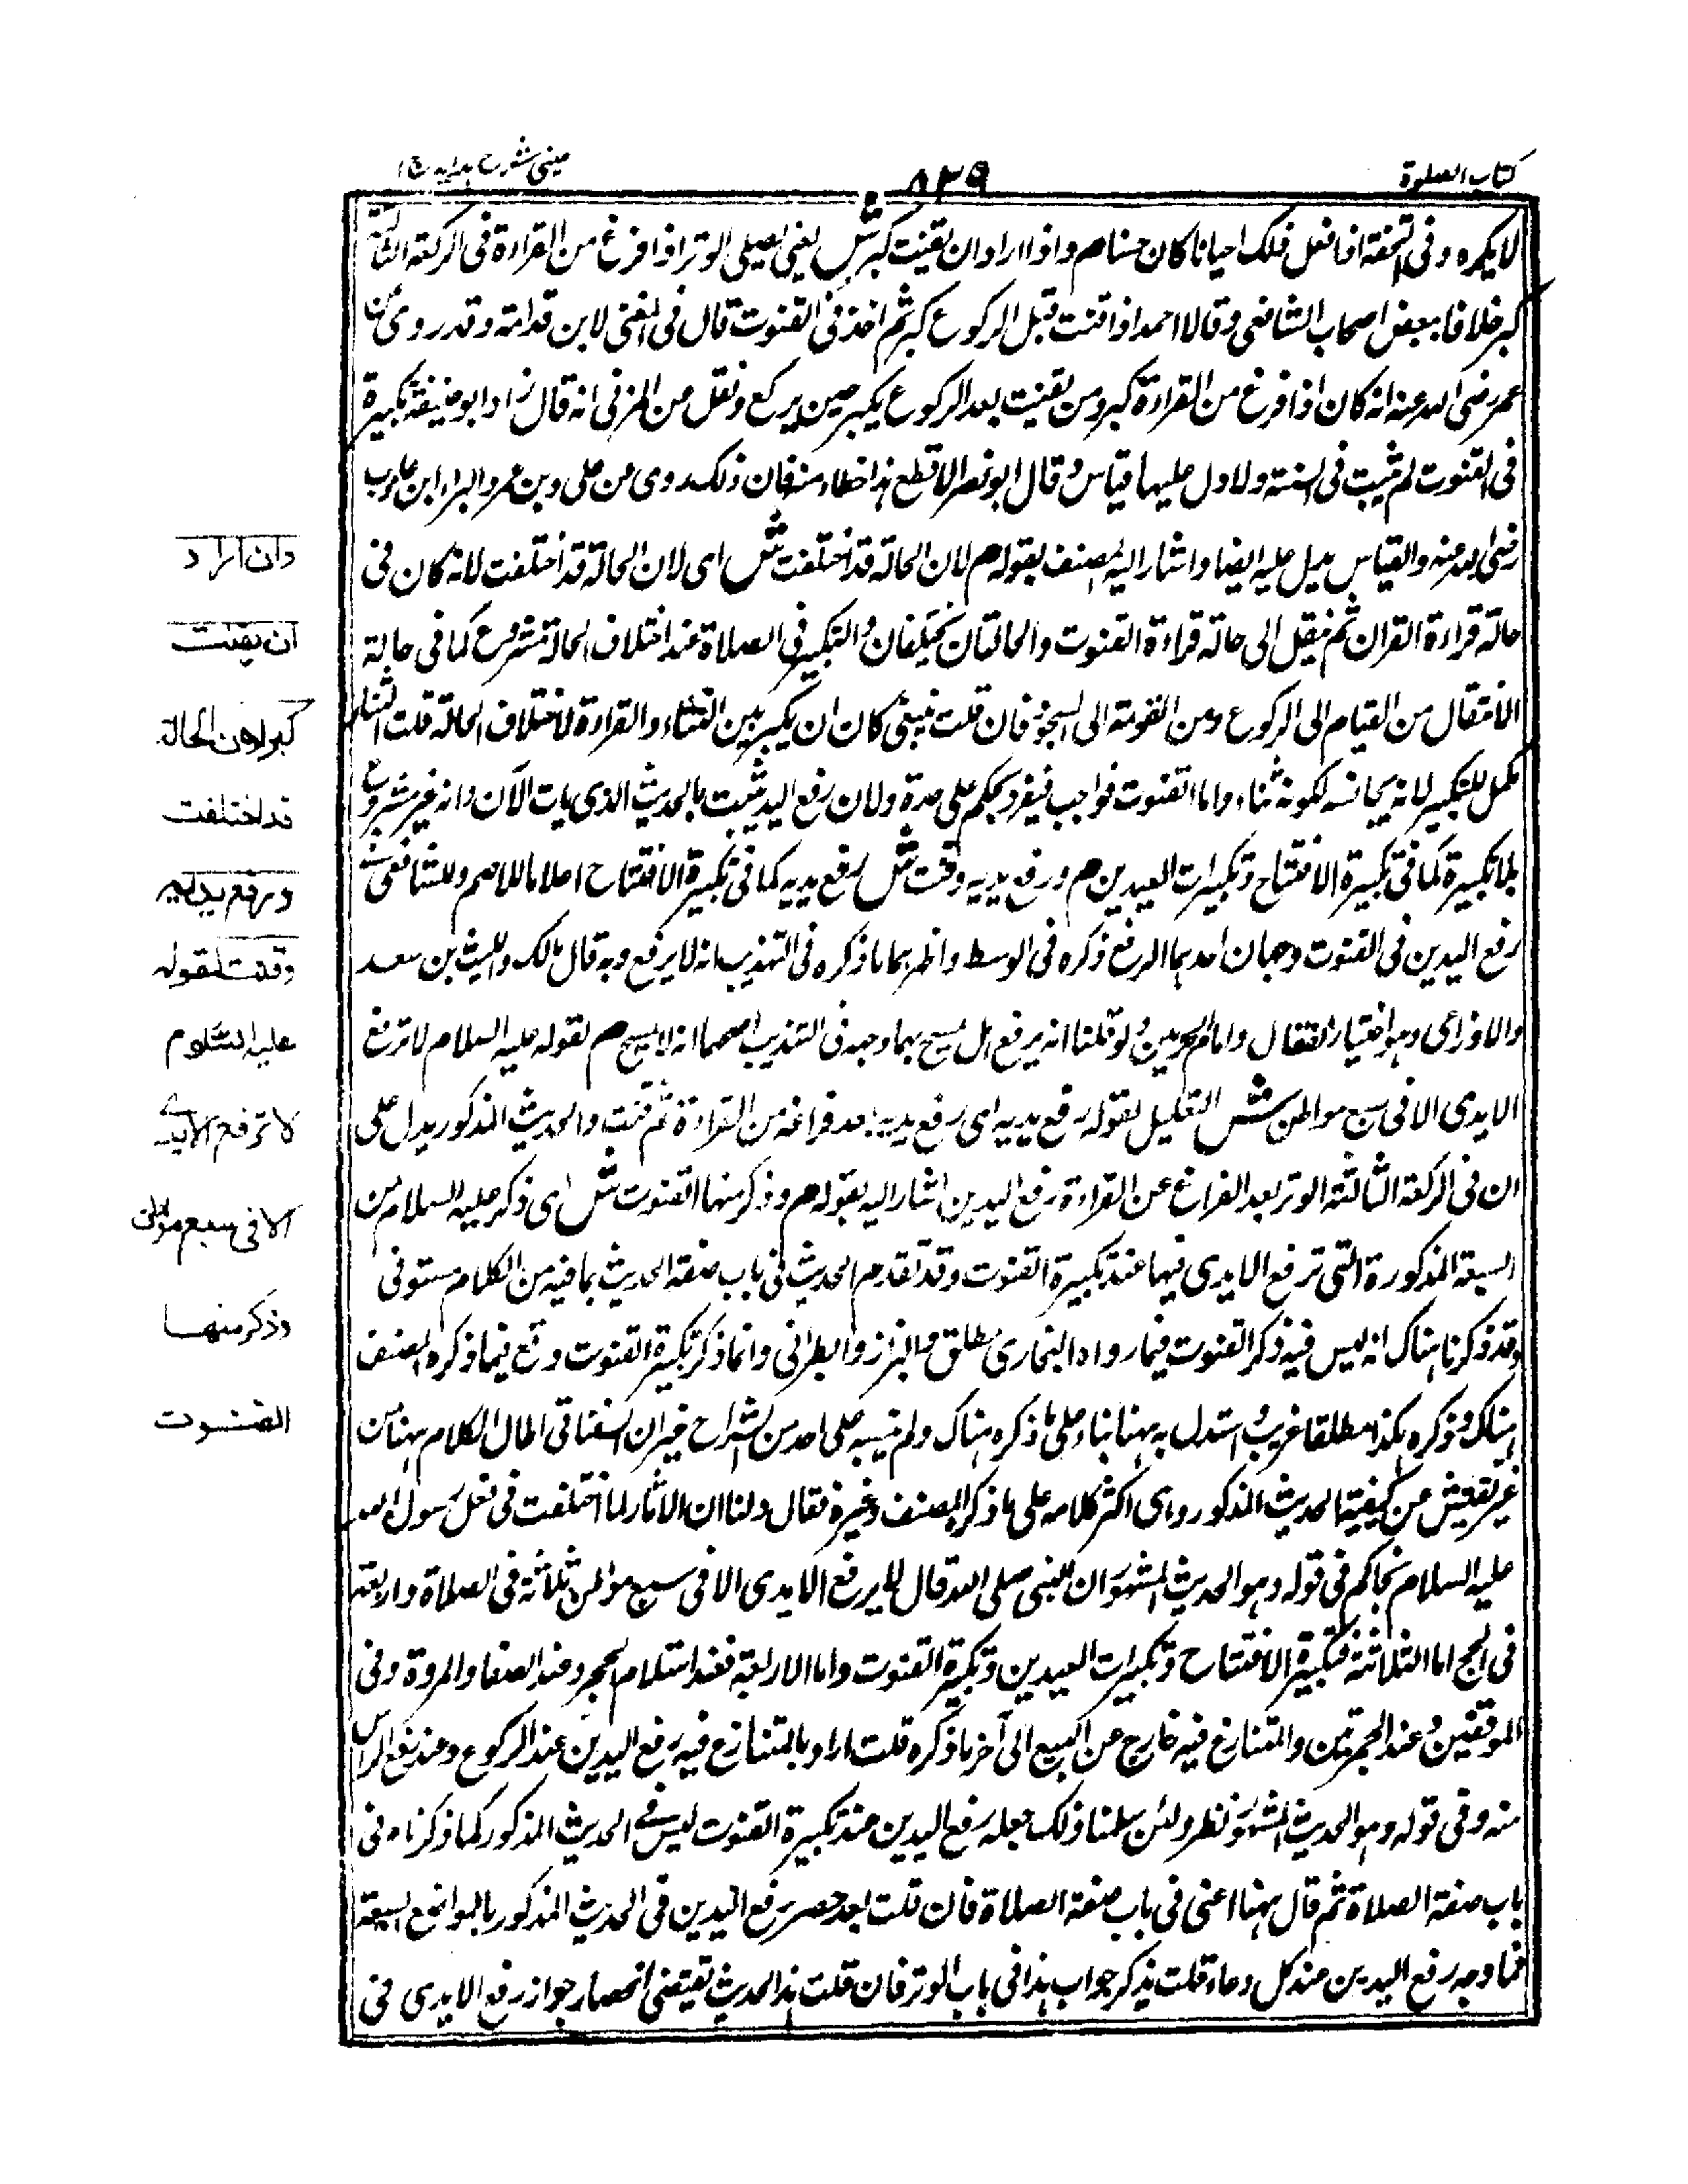 كتاب الصلوة
٨٢٩
عينى شرح هدايه ج١
لا يكره وفى التحفة اذا فعل ذلك احيانا كان حسنا هم واذا اراد ان يقنت كبر ش يعنى يصلى الوتر اذا فرغ من القراءة فى الركعة الثالثة
كبر خلافا لبعض اصحاب الشافعى وقالا احمد اذا قنت قبل الركوع كبر ثم اخذ فى القنوت قال فى المغنى لابن قدامة وقد روى عن
عمر رضى الله عنه انه كان اذا فرغ من القراءة كبر ومن يقنت بعد الركوع يكبر حين يركع ونقل من المزنى انه قال زاد ابو حنيفة تكبيرة
فى القنوت لم تثبت فى السنة ولا دل عليها قياس وقال ابو نصر الاقطع هذا خطاء منه فان ذلك روى عن على وبن عمر والبراء ابن عازب
رضى الله عنه والقياس يدل عليه ايضا واشار اليه المصنف بقوله هم لان الحالة قد اختلفت ش اى لان الحالة قد اختلفت لانه كان فى
حالة قراءة القران ثم ينتقل الى حالة قراءة القنوت والحالتان تختلفان والتكبير فى الصلاة عند اختلاف الحالة مشروع كما فى حالة
الانتقال من القيام الى الركوع ومن القومة الى السجود فان قلت ينبغى كان ان يكبر بين الثناء والقراءة لاختلاف الحالة قلت الثناء
مكمل للتكبير لانه يجانسه لكونه ثناء واما القنوت فواجب فيفرد بحكم على حدة ولان رفع اليد ثبت بالحديث الذى يات الآن وانه غير مشروع
بلا تكبيرة كما فى تكبيرة الافتتاح وتكبيرات العيدين هم ورفع يديه وقنت ش رفع يديه كما فى تكبيرة الافتتاح اعلاما للاصم وللشافعى فى
رفع اليدين فى القنوت وجهان احدهما الرفع ذكره فى الوسط واظهرهما ما ذكره فى التهذيب انه لا يرفع وبه قال مالك والليث بن سعد
والاوزاعى وهو اختيار القفال وامام الحرمين ولو قلنا انه يرفع هل يمسح بهما وجهه فى التهذيب اصحهما انه لا يمسح هم لقوله عليه السلام لا ترفع
الايدى الا فى سبع مواطن ش التعليل لقوله رفع يديه اى رفع يديه بعد فراغه من القراءة ثم قنت والحديث المذكور يدل على
ان فى الركعة الثالثة الوتر بعد الفراغ عن القراءة رفع اليدين اشار اليه بقوله هم وذكر منها القنوت ش اى ذكر عليه السلام من
السبعة المذكورة التى ترفع الايدى فيها عند تكبيرة القنوت وقد تقدم الحديث فى باب صفة الحديث بما فيه من الكلام مستوفى
وقد ذكرنا هناك انه ليس فيه ذكر القنوت فيما رواه البخارى مطلق والبزاز والطبرانى وانما ذكر تكبيرة القنوت وقع فيما ذكره المصنف
هناك وذكره هكذا مطلقا غريب واستدل به ههنا بناء على ما ذكره هناك ولم ينبه على احد من الشراح غير ان السغناقى اطال الكلام ههنا من
غير تفتيش عن كيفية الحديث المذكور وبنى اكثر كلامه على ما ذكره المصنف وغيره فقال ولنا ان الاثار لما اختلفت فى فعل رسول الله
عليه السلام تحاكم فى قوله وهو الحديث المشهور ان النبى صلى الله قال لا يرفع الايدى الا فى سبع مواطن ثلاثة فى الصلاة واربعة
فى الحج اما الثلاثة فتكبيرة الافتتاح وتكبيرات العيدين وتكبيرة القنوت واما الاربعة فعند استلام الحجر وعند الصفا والمروة وفى
الموقفين وعند الجمرتين والمتنازع فيه خارج عن السبع الى آخر ما ذكره قلت اراد بالمتنازع فيه رفع اليدين عند الركوع وعند رفع الراس
منه وفى قوله وهو الحديث المشهور نظر ولئن سلمنا ذلك جعله رفع اليدين عند تكبيرة القنوت ليس فى الحديث المذكور كما ذكرناه فى
باب صفة الصلاة ثم قال ههنا اعنى فى باب صفة الصلاة فان قلت بعد حصر رفع اليدين فى الحديث المذكور بالمواضع السبعة
فما وجه رفع اليدين عند كل دعاء قلت يذكر جواب هذا فى باب الوتر فان قلت هذا الحديث يقتضى انحصار جواز رفع الايدى فى
وان اراد
ان يقنت
كبر لان الحالة
قد اختلفت
ورفع يديه
وقنت لقوله
عليه السلام
لا ترفع الايدے
الا فى سبع مواطن
وذكر منها
القنوت